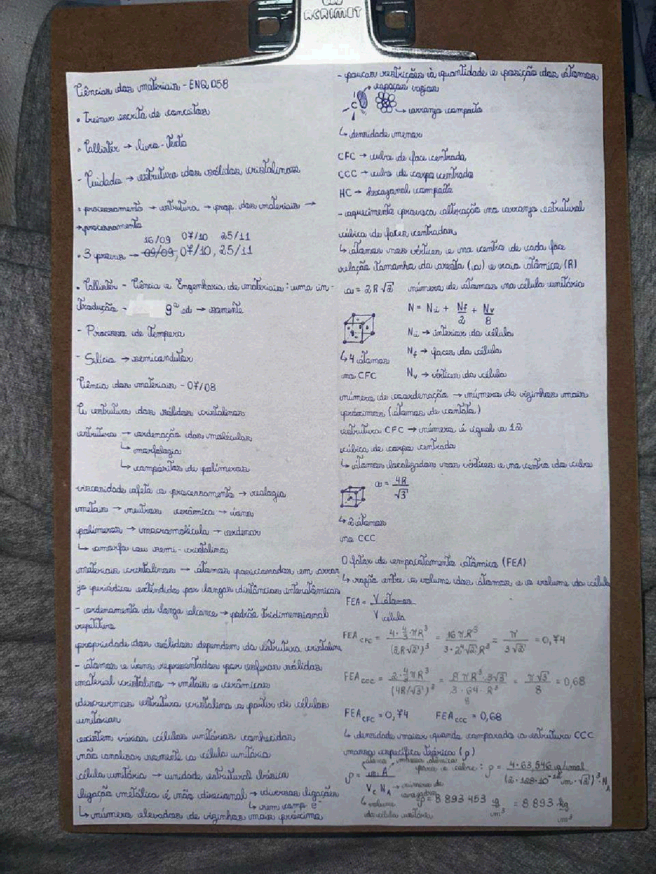 ACRIMET
Ciências dos materiais - ENG 058
• Treinar escrita de conceitos
• Callister → livro-texto
- Cuidado → estrutura dos sólidos cristalinos
• processamento → estrutura → prop. dos materiais →
→ processamento
16/09 07/10 25/11
• 3 provas → 09/09, 07/10, 25/11
• Callister - Ciência e Engenharia de materiais: uma in-
trodução - 9ª ed → somente
- Processo de têmpera
- Silício → semicondutor
Ciência dos materiais - 07/08
estrutura dos sólidos cristalinos
estrutura → ordenação das moléculas
↳ morfologia
↳ compósitos de polímeros
viscosidade afeta o processamento → reologia
metais → neutros cerâmica → íons
polímeros → macromolécula →
↳ amorfo ou semi-cristalino
materiais cristalinos → átomos posicionados em arran
jo periódico estendido por longas distâncias interatômicas
- ordenamento de longo alcance → padrão tridimensional
repetitivo
propriedade dos sólidos dependem da estrutura cristalina
- átomos e íons representados por esferas sólidas
material cristalino → metais e cerâmicas
descrevemos estrutura cristalina a partir de células
unitárias
existem várias células unitárias conhecidas
não analisar somente a célula unitária
célula unitária → unidade estrutural básica
ligação metálica é não direcional → diversas ligações
↳ números elevados de vizinhos mais próximos
- poucas restrições à quantidade e posição dos átomos
espaços vazios
C
→ arranjo compacto
↳ densidade menor
CFC → cubo de face centrada
CCC → cubo de corpo centrado
HC → hexagonal compacto
- aquecimento provoca alteração no arranjo estrutural
cúbica de faces centradas
↳ átomos nos vértices e no centro de cada face
relação tamanho da aresta (a) e raio atômico (R)
a = 2R√2 número de átomos na célula unitária
N = Ni + Nf/2 + Nv/8
Ni → interior da célula
Nf → faces da célula
↳ 4 átomos
na CFC
Nv → vértices da célula
número de coordenação → número de vizinhos mais
próximos (átomos de contato)
estrutura CFC → número é igual a 12
cúbica de corpo centrado
↳ átomos localizados nos vértices e no centro do cubo
a = 4R/√3
↳ 2 átomos
na CCC
O fator de empacotamento atômico (FEA)
↳ razão entre o volume dos átomos e o volume da célula
FEA = V átomos / V célula
FEA CFC = 4·4/3πR³ / (2R√2)³ = 16πR³ / 3·2⁴√2R³ = π / 3√2 = 0,74
FEA CCC = 2·4/3πR³ / (4R/√3)³ = 8πR³ 3√3 / 3·64·R³ = π√3 / 8 = 0,68
8
FEA CFC = 0,74 FEA CCC = 0,68
↳ densidade maior quando comparada a estrutura CCC
massa específica teórica (ρ)
ρ = n A / Vc NA para o cobre: ρ = 4·63,546 g/mol / (2·128·10⁻¹² m·√2)³ NA
→ número de avogadro
↳ volume
da célula unitária
ρ = 8 893 453 g/m³ = 8 893 kg/m³